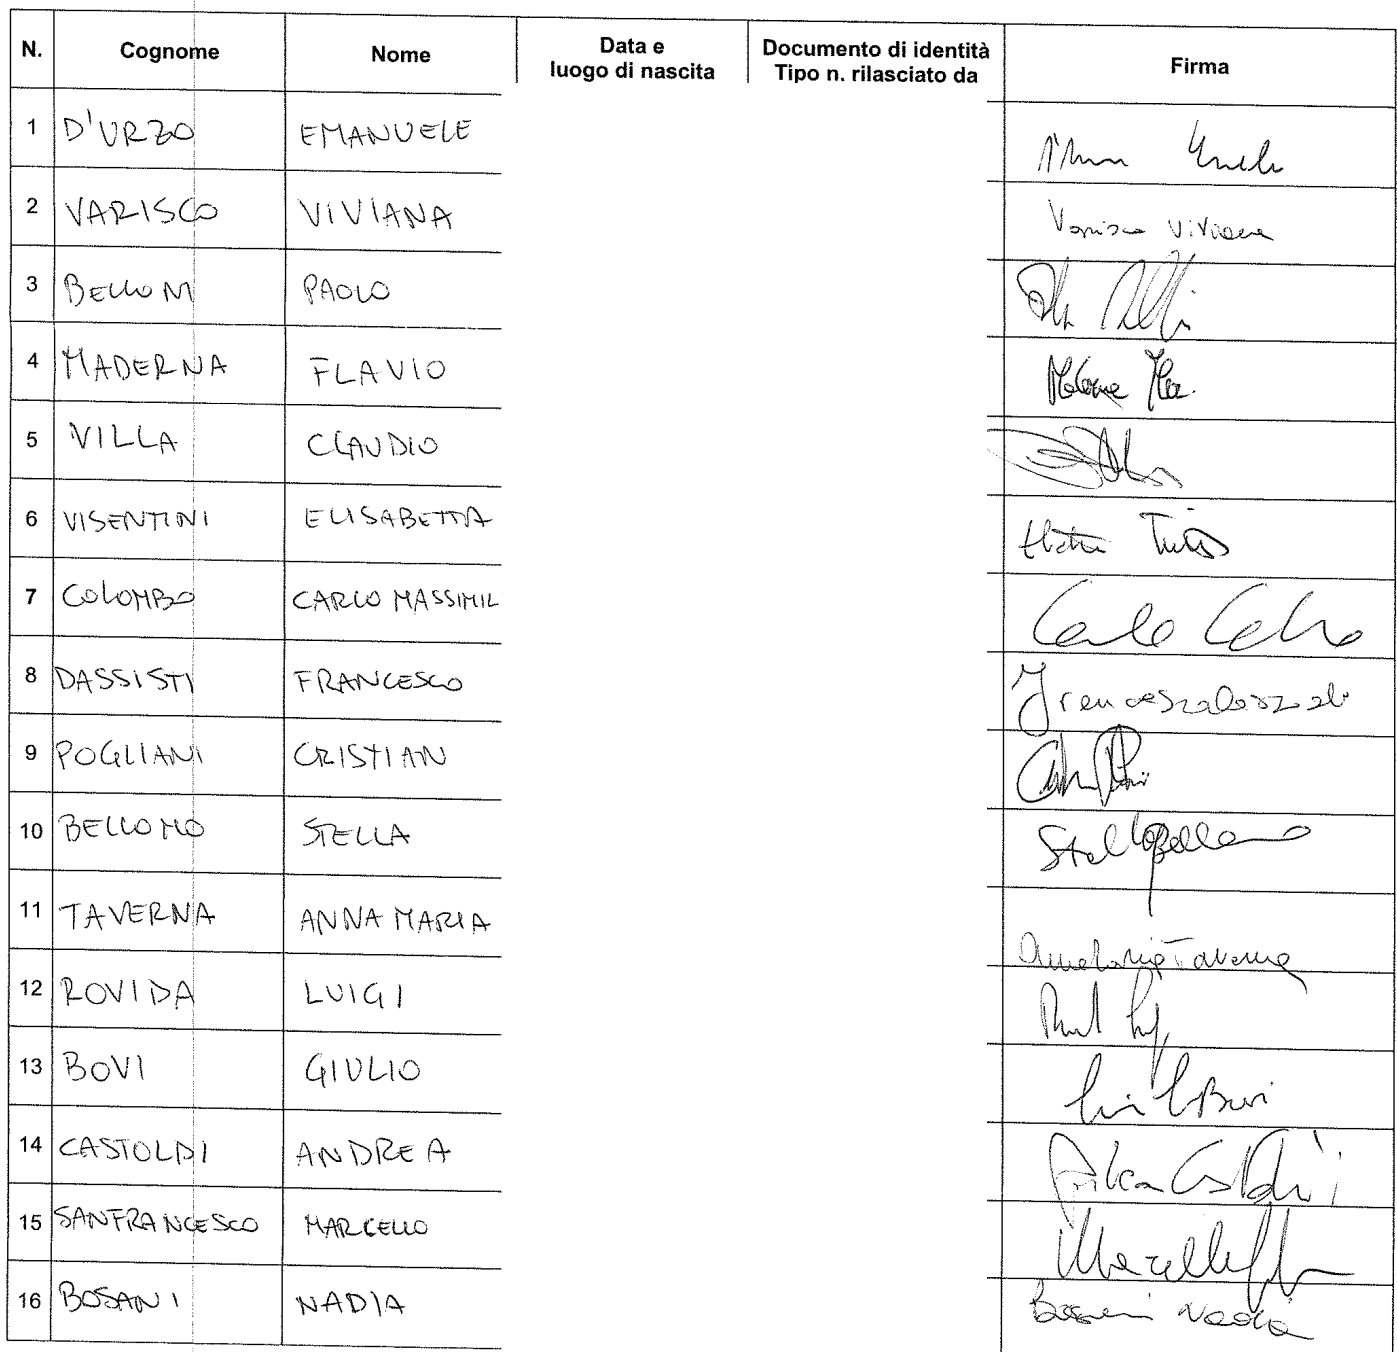 N. Cognome Nome Data e luogo di nascita Documento di identità Tipo n. rilasciato da Firma
1 D'URZO EMANUELE
2 VARISCO VIVIANA Varisco Viviana
3 BELLONI PAOLO
4 MADERNA FLAVIO
5 VILLA CLAUDIO
6 VISENTINI ELISABETTA
7 COLOMBO CARLO MASSIMIL
8 DASSISTI FRANCESCO
9 POGLIANI CRISTIAN
10 BELLOMO STELLA Stella Bellomo
11 TAVERNA ANNA MARIA Anna Maria Taverna
12 ROVIDA LUIGI
13 BOVI GIULIO
14 CASTOLDI ANDREA
15 SANFRANCESCO MARCELLO
16 BOSANI NADIA Bosani Nadia